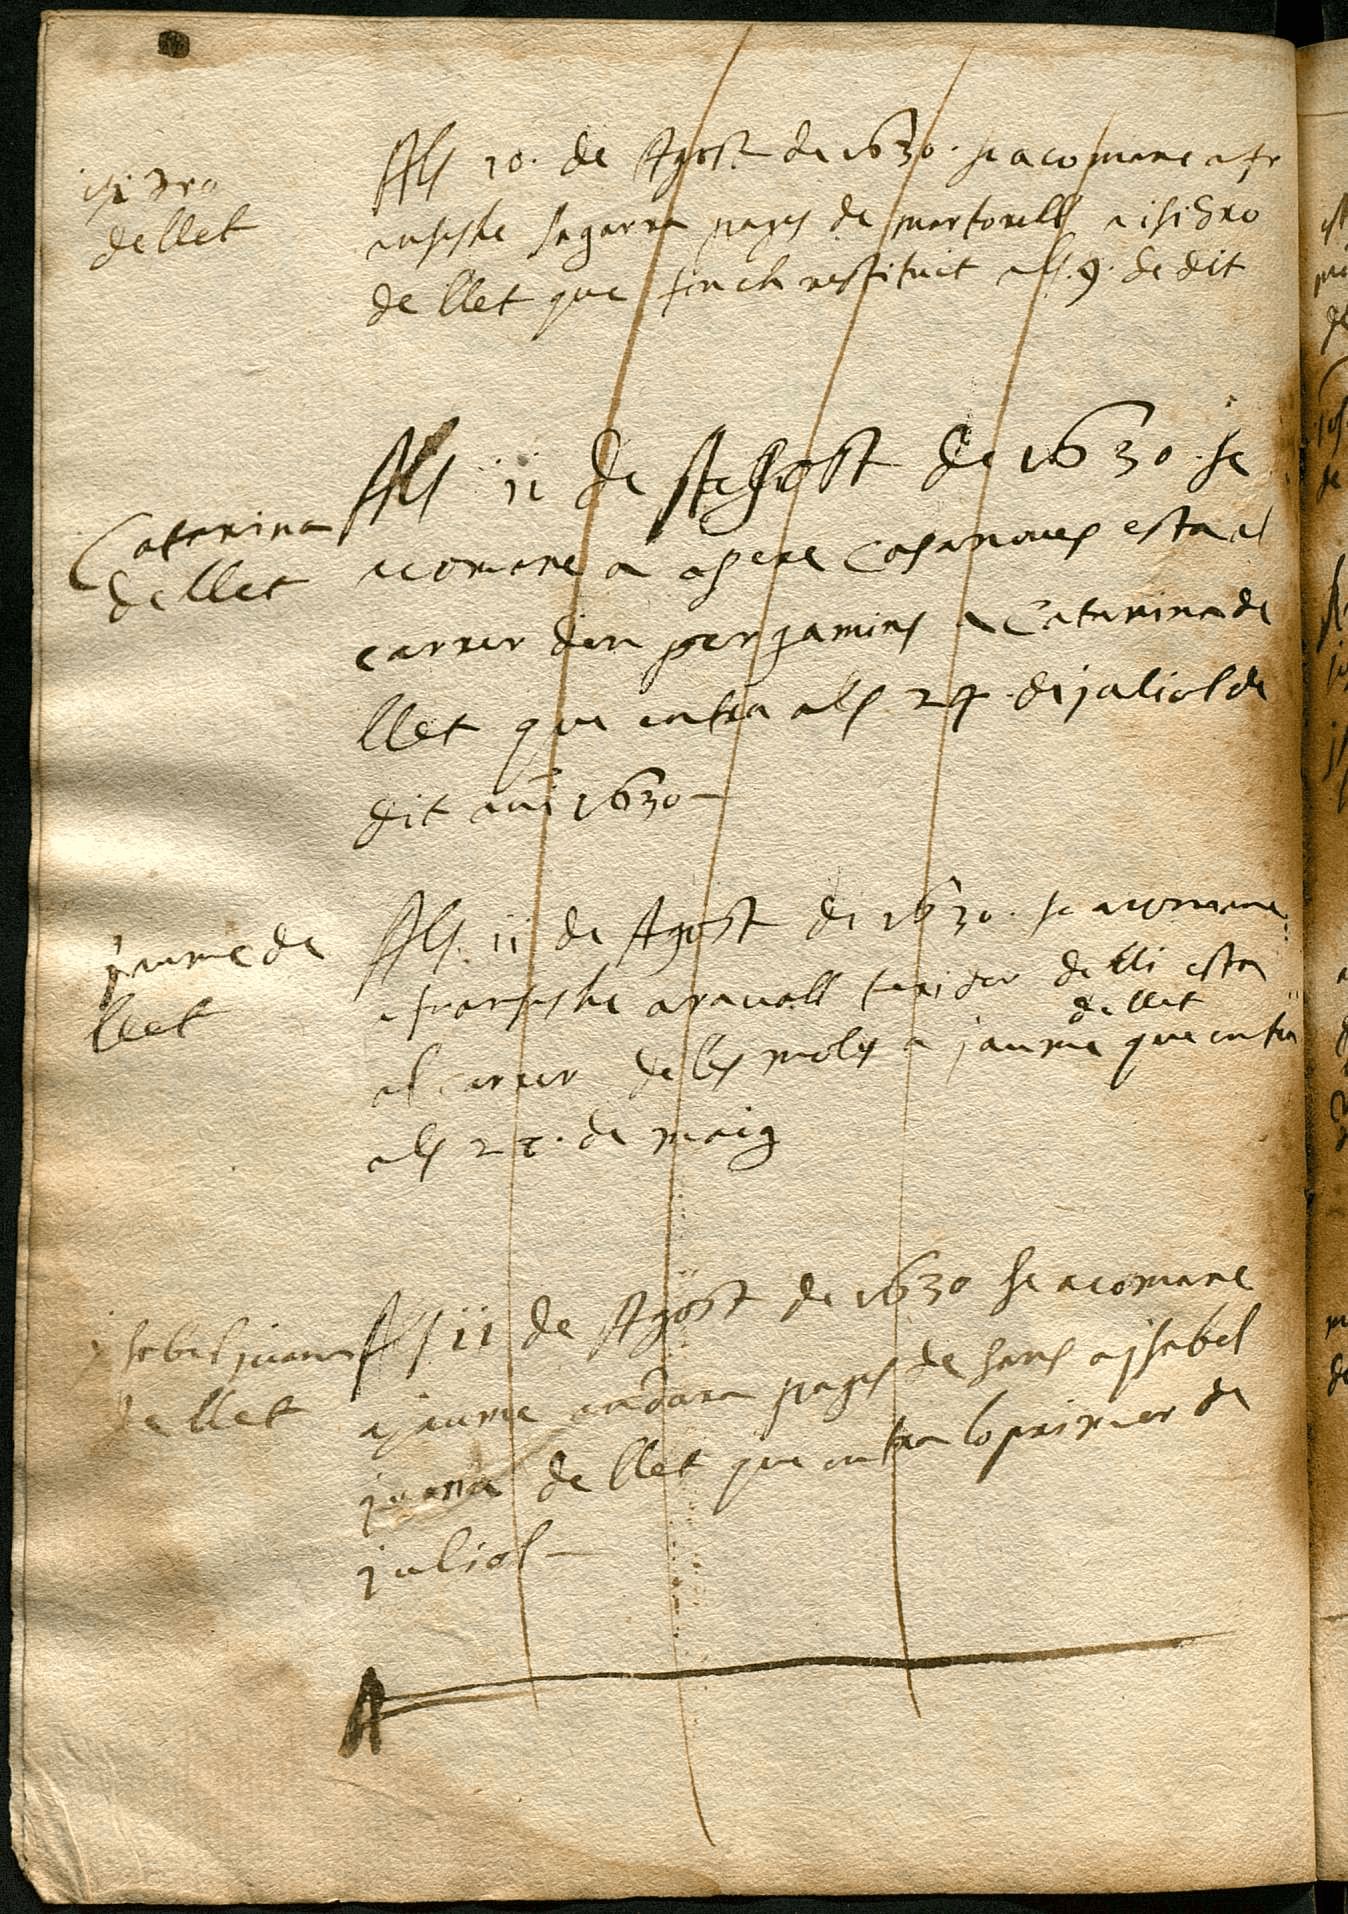 isidro
de llet
Als 10. de Agost de 1630. se acomane a fr
ansishe sagarra pages de martorell a isidro
de llet que fonch restituit als 9. de dit
Catarina
de llet
Als 11 de Agost de 1630. se
acomane a a pere Casanoues esta al
carrer den pergamins a Catarina de
llet que entra als 24. de juliol de
dit ani 1630
jaume de
llet
Als 11 de Agost de 1630. se acomana
a fransishe arauall texidor de lli esta
de llet
al carrer de les moles a jaume que entra
als 28. de maig
isabel juana
de llet
Als 11 de Agost de 1630 se acomane
a jaume andara pages de sans a jsabel
juana de llet que entra lo primer de
juliol